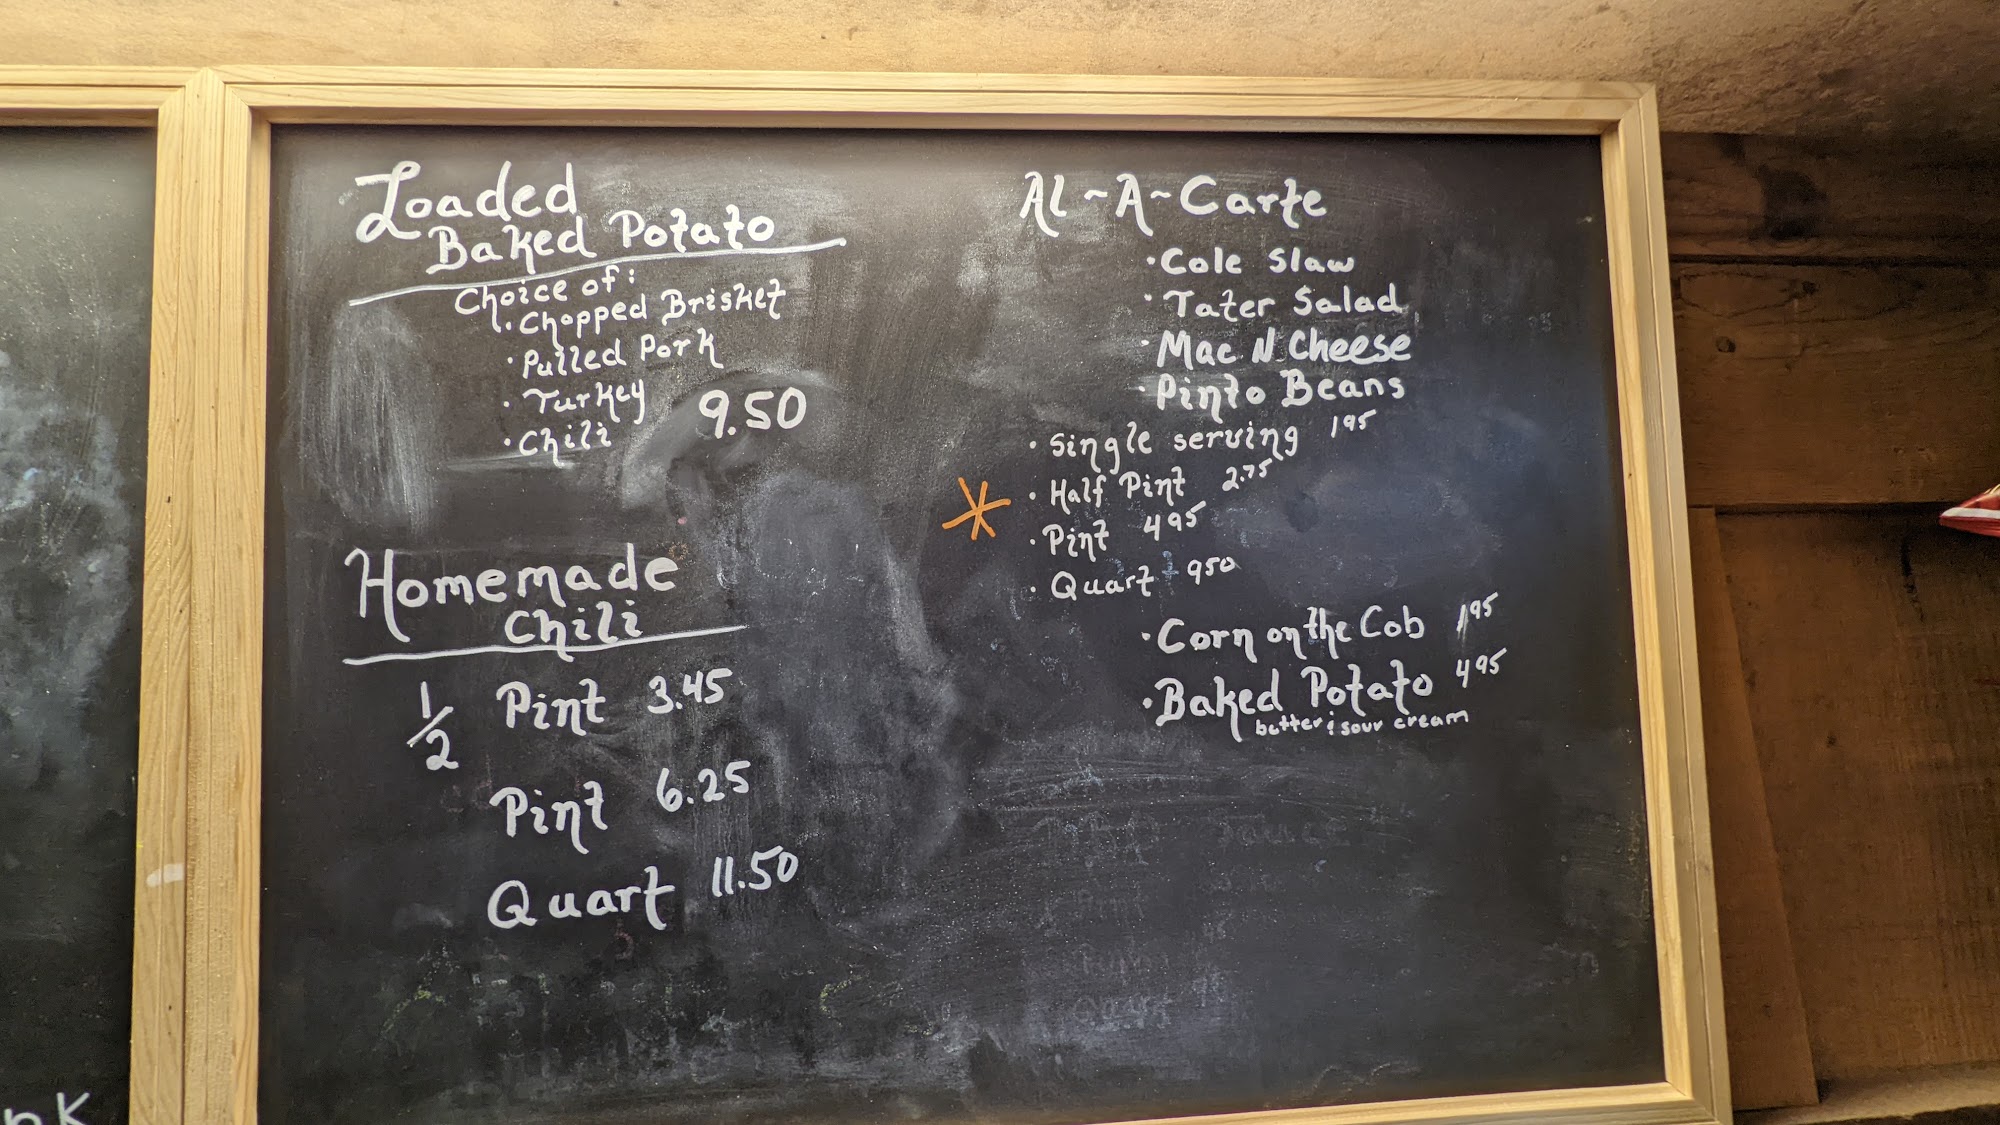 Loaded
Baked Potato
Choice of:
· Chopped Brisket
· Pulled Pork
· Turkey
· Chili
9.50
Homemade
Chili
1/2 Pint 3.45
Pint 6.25
Quart 11.50
Al~A~Carte
· Cole Slaw
· Tater Salad
· Mac N Cheese
· Pinto Beans
· Single serving 195
· Half Pint 2.75
· Pint 495
· Quart 950
· Corn on the Cob 195
· Baked Potato 495
butter & sour cream